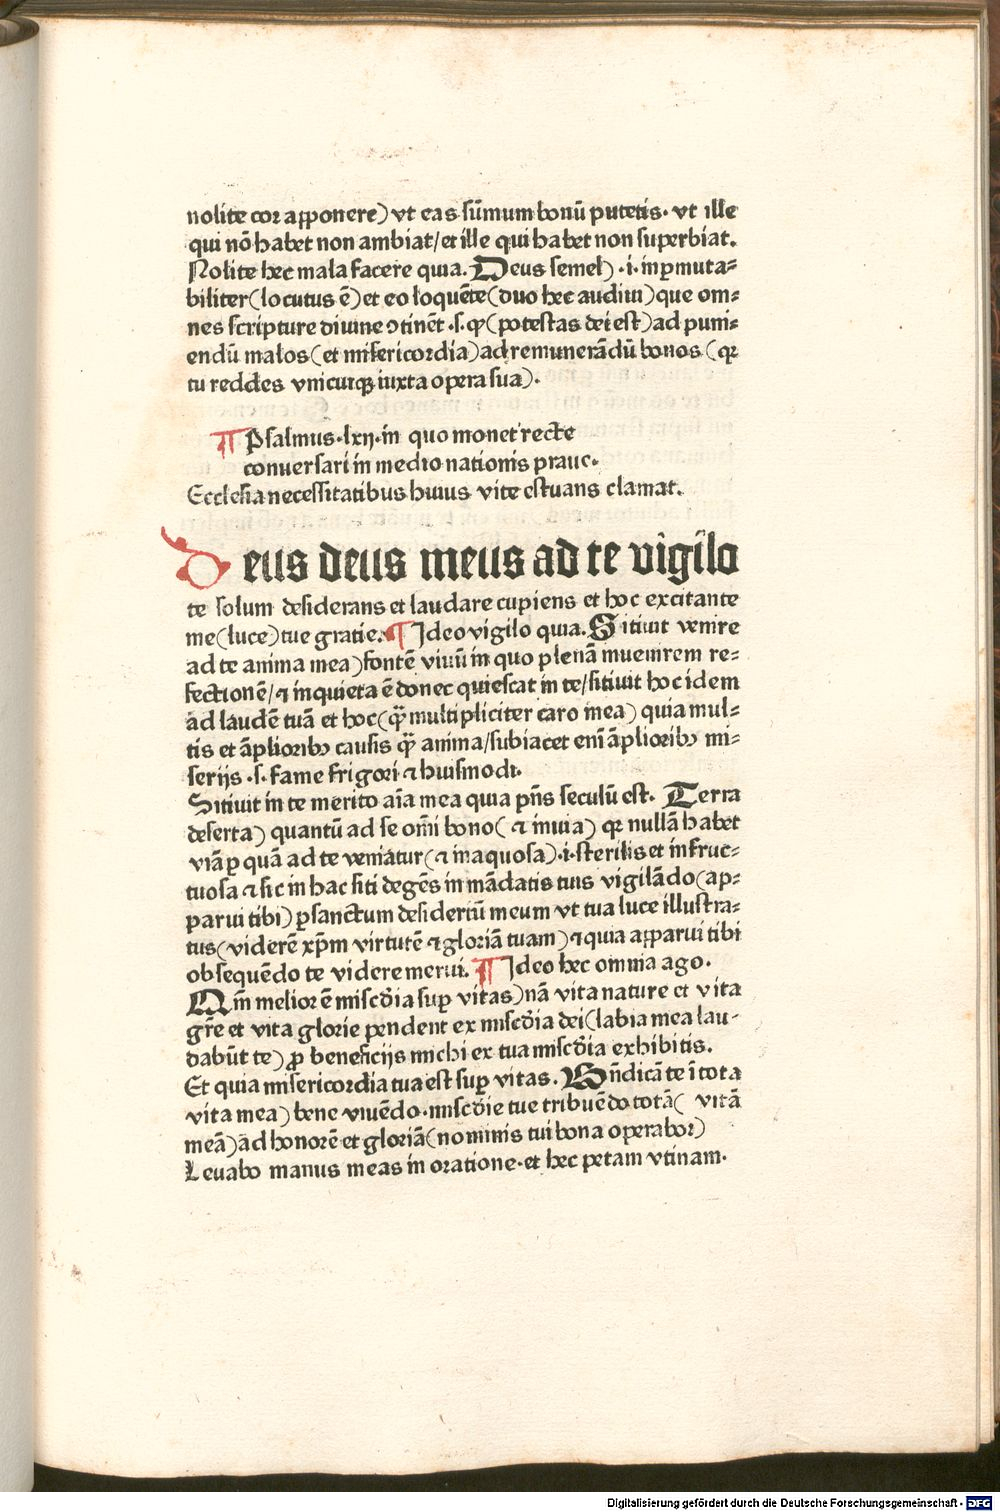 nolite cor apponere) vt eas sūmum bonū putetis· vt ille
qui nō habet non ambiat/ et ille qui habet non superbiat.
Nolite hec mala facere quia. Deus semel) ·i· inꝑmuta⸗
biliter (locutus ē) et eo loquēte (duo hec audiui) que om⸗
nes scripture diuine ɔtinēt ·s· ꝙ (potestas dei est) ad puni⸗
endū malos (et misericordia) ad remunerādū bonos (qꝛ
tu reddes vnicuiqꝫ iuxta opera sua).
¶ Psalmus·lxij·in quo monet recte
conuersari in medio nationis praue.
Ecclesia necessitatibus huius vite estuans clamat.
Deus deus meus ad te vigilo
te solum desiderans et laudare cupiens et hoc excitante
me (luce) tue gratie. ¶ Ideo vigilo quia. Sitiuit venire
ad te anima mea) fontē viuū in quo plenā inuenirem re⸗
fectionē/ ⁊ inquieta ē donec quiescat in te/ sitiuit hoc idem
ad laudē tuā et hoc (qꝫ̄ multipliciter caro mea) quia mul⸗
tis et āplioribꝰ causis qꝫ̄ anima/ subiacet enī āplioribꝰ mi⸗
serijs ·s· fame frigori ⁊ huiusmodi.
Sitiuit in te merito aīa mea quia pn̄s seculū est. Terra
deserta) quantū ad se om̄i bono (⁊ inuia) qꝛ nullā habet
viā ꝑ quā ad te veniatur (⁊ inaquosa) ·i· sterilis et infruc⸗
tuosa ⁊ sic in hac siti degēs in mādatis tuis vigilādo (ap⸗
parui tibi) ꝑ sanctum desideriū meum vt tua luce illustra⸗
tus (viderē xp̄m virtutē ⁊ gloriā tuam) ⁊ quia apparui tibi
obsequēdo te videre merui. ¶ Ideo hec omnia ago.
Qm̄ melior ē misc̄dia suꝑ vitas) nā vita nature et vita
gr̄e et vita glorie pendent ex misc̄dia dei (labia mea lau⸗
dabūt te) ꝓ beneficijs michi ex tua misc̄dia exhibitis.
Et quia misericordia tua est suꝑ vitas. Bn̄dicā te ī tota
vita mea) bene viuēdo· misc̄die tue tribuēdo totā (vitā
meā) ad honorē et gloriā (nominis tui bona operabor)
Leuabo manus meas in oratione· et hec petam vtinam.
Digitalisierung gefördert durch die Deutsche Forschungsgemeinschaft - DFG